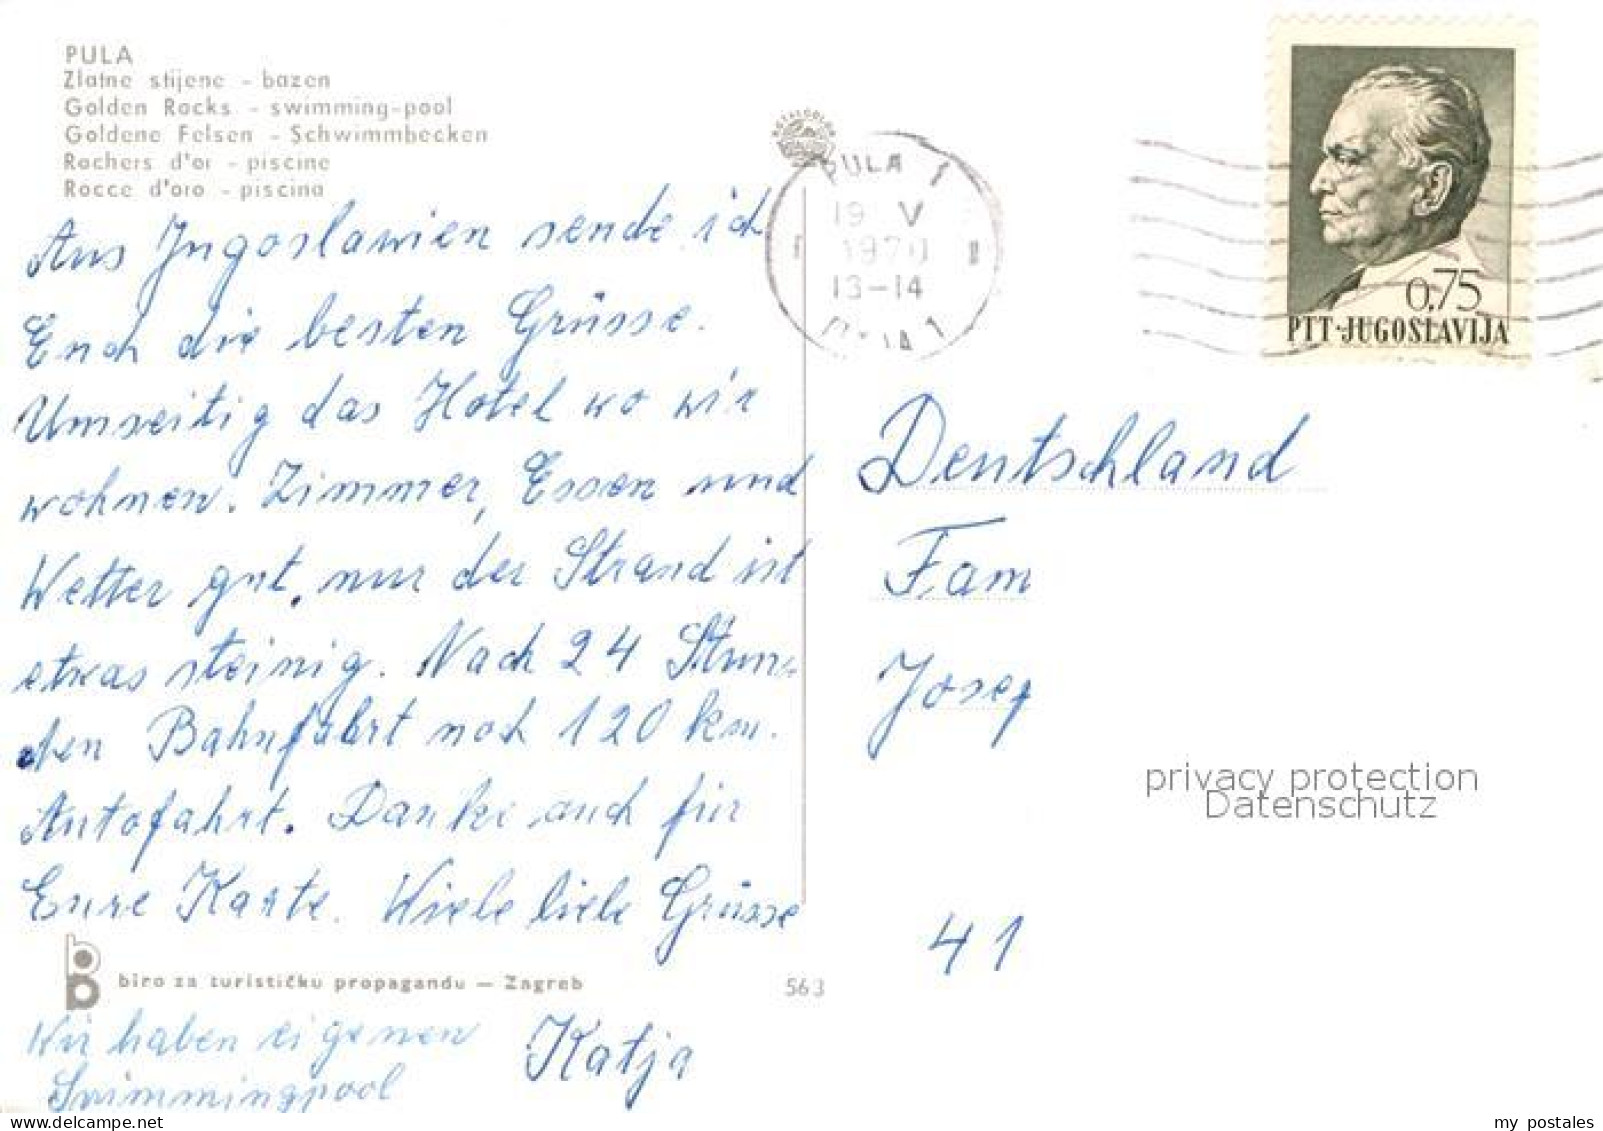 PULA
Zlatne stijene - bazen
Golden Rocks - swimming-pool
Goldene Felsen - Schwimmbecken
Rochers d'or - piscine
Rocce d'oro - piscina
Aus Jugoslawien sende ich
Euch die besten Grüsse.
Umseitig das Hotel wo wir
wohnen. Zimmer, Essen und
Wetter gut, nur der Strand ist
etwas steinig. Nach 24 Stun-
den Bahnfahrt noch 120 km.
Autofahrt. Danke auch für
Eure Karte. Viele liebe Grüsse
biro za turističku propagandu — Zagreb
563
Wir haben eigenen
Swimmingpool
Katja
PULA 1
19 V
1970
13-14
0,75
PTT·JUGOSLAVIJA
Deutschland
Fam
Josef
privacy protection
Datenschutz
41
delcampe.net
my_postales